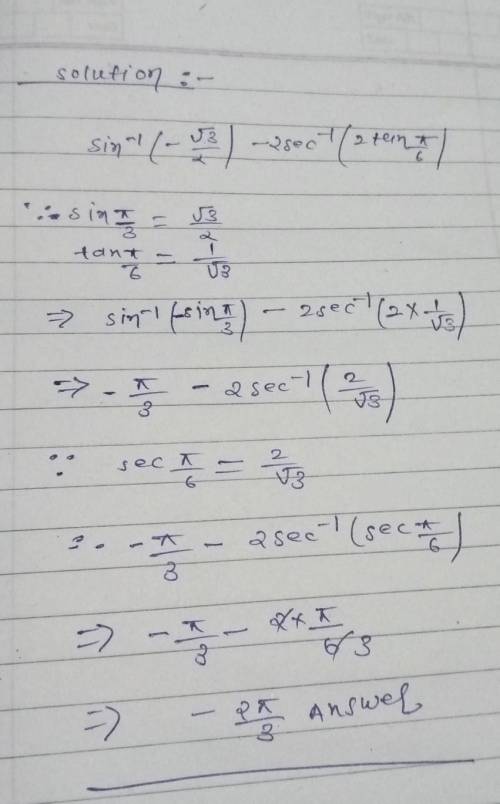 solution :-
sin⁻¹(-√3/2) - 2sec⁻¹(2tan π/6)
∵ sin π/3 = √3/2
tan π/6 = 1/√3
⇒ sin⁻¹(-sin π/3) - 2sec⁻¹(2 × 1/√3)
⇒ -π/3 - 2sec⁻¹(2/√3)
∵ sec π/6 = 2/√3
∴ -π/3 - 2sec⁻¹(sec π/6)
⇒ -π/3 - 2 × π/6 3
⇒ -2π/3 Answer